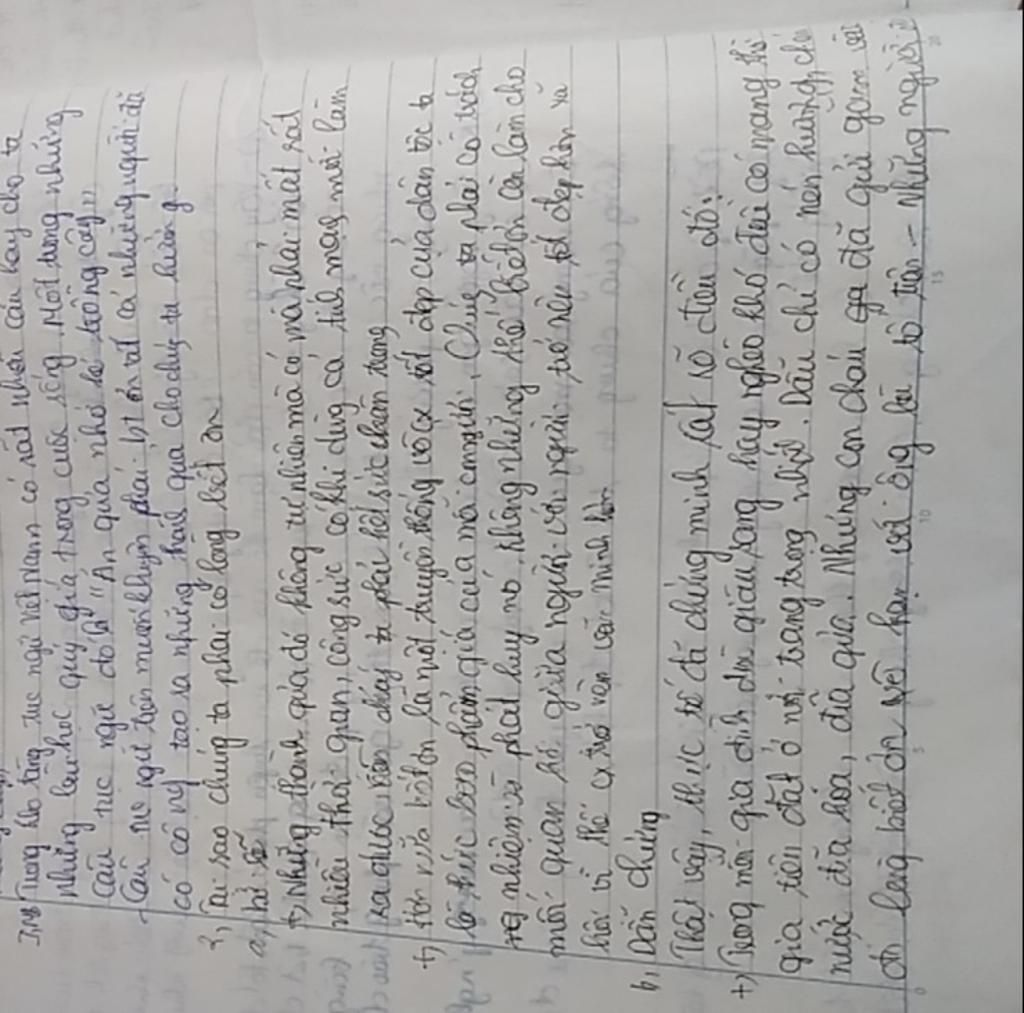 Trong kho tàng tục ngữ Việt Nam có rất nhiều câu hay cho ta
những bài học quý giá trong cuộc sống. Một trong những
câu tục ngữ đó là "Ăn quả nhớ kẻ trồng cây"
- Câu tục ngữ trên muốn khuyên phải bt ơn tất cả những người đã
có công tạo ra những thành quả cho chúng ta hưởng
2, Tại sao chúng ta phải có lòng biết ơn
a, Lí lẽ
+) Những thành quả đó không tự nhiên mà có mà phải mất rất
nhiều thời gian, công sức có khi dùng cả tính mạng mới làm
ra được nên chúng ta phải hết sức trân trọng
+) Hơn nữa biết ơn là một truyền thống vô cx tốt đẹp của dân tộc ta
là thước đo phẩm giá của mỗi con người. Chúng ta phải có trách
nhiệm phát huy nó, không những thế biết ơn còn làm cho
mối quan hệ giữa người với người trở nên tốt đẹp hơn xã
hội vì thế cx trở nên văn minh hơn
b, Dẫn chứng
Thật vậy, thực tế đã chứng minh rất rõ điều đó:
+) Trong mỗi gia đình dù giàu sang hay nghèo khó đều có mang thờ
gia tiên đặt ở nơi trang trọng nhất. Dẫu chỉ có nén hương, chén
nước đĩa hóa, đĩa quả. Nhưng con cháu đã gửi gắm vào
đó lòng biết ơn vô hạn với ông bà tổ tiên - Những người